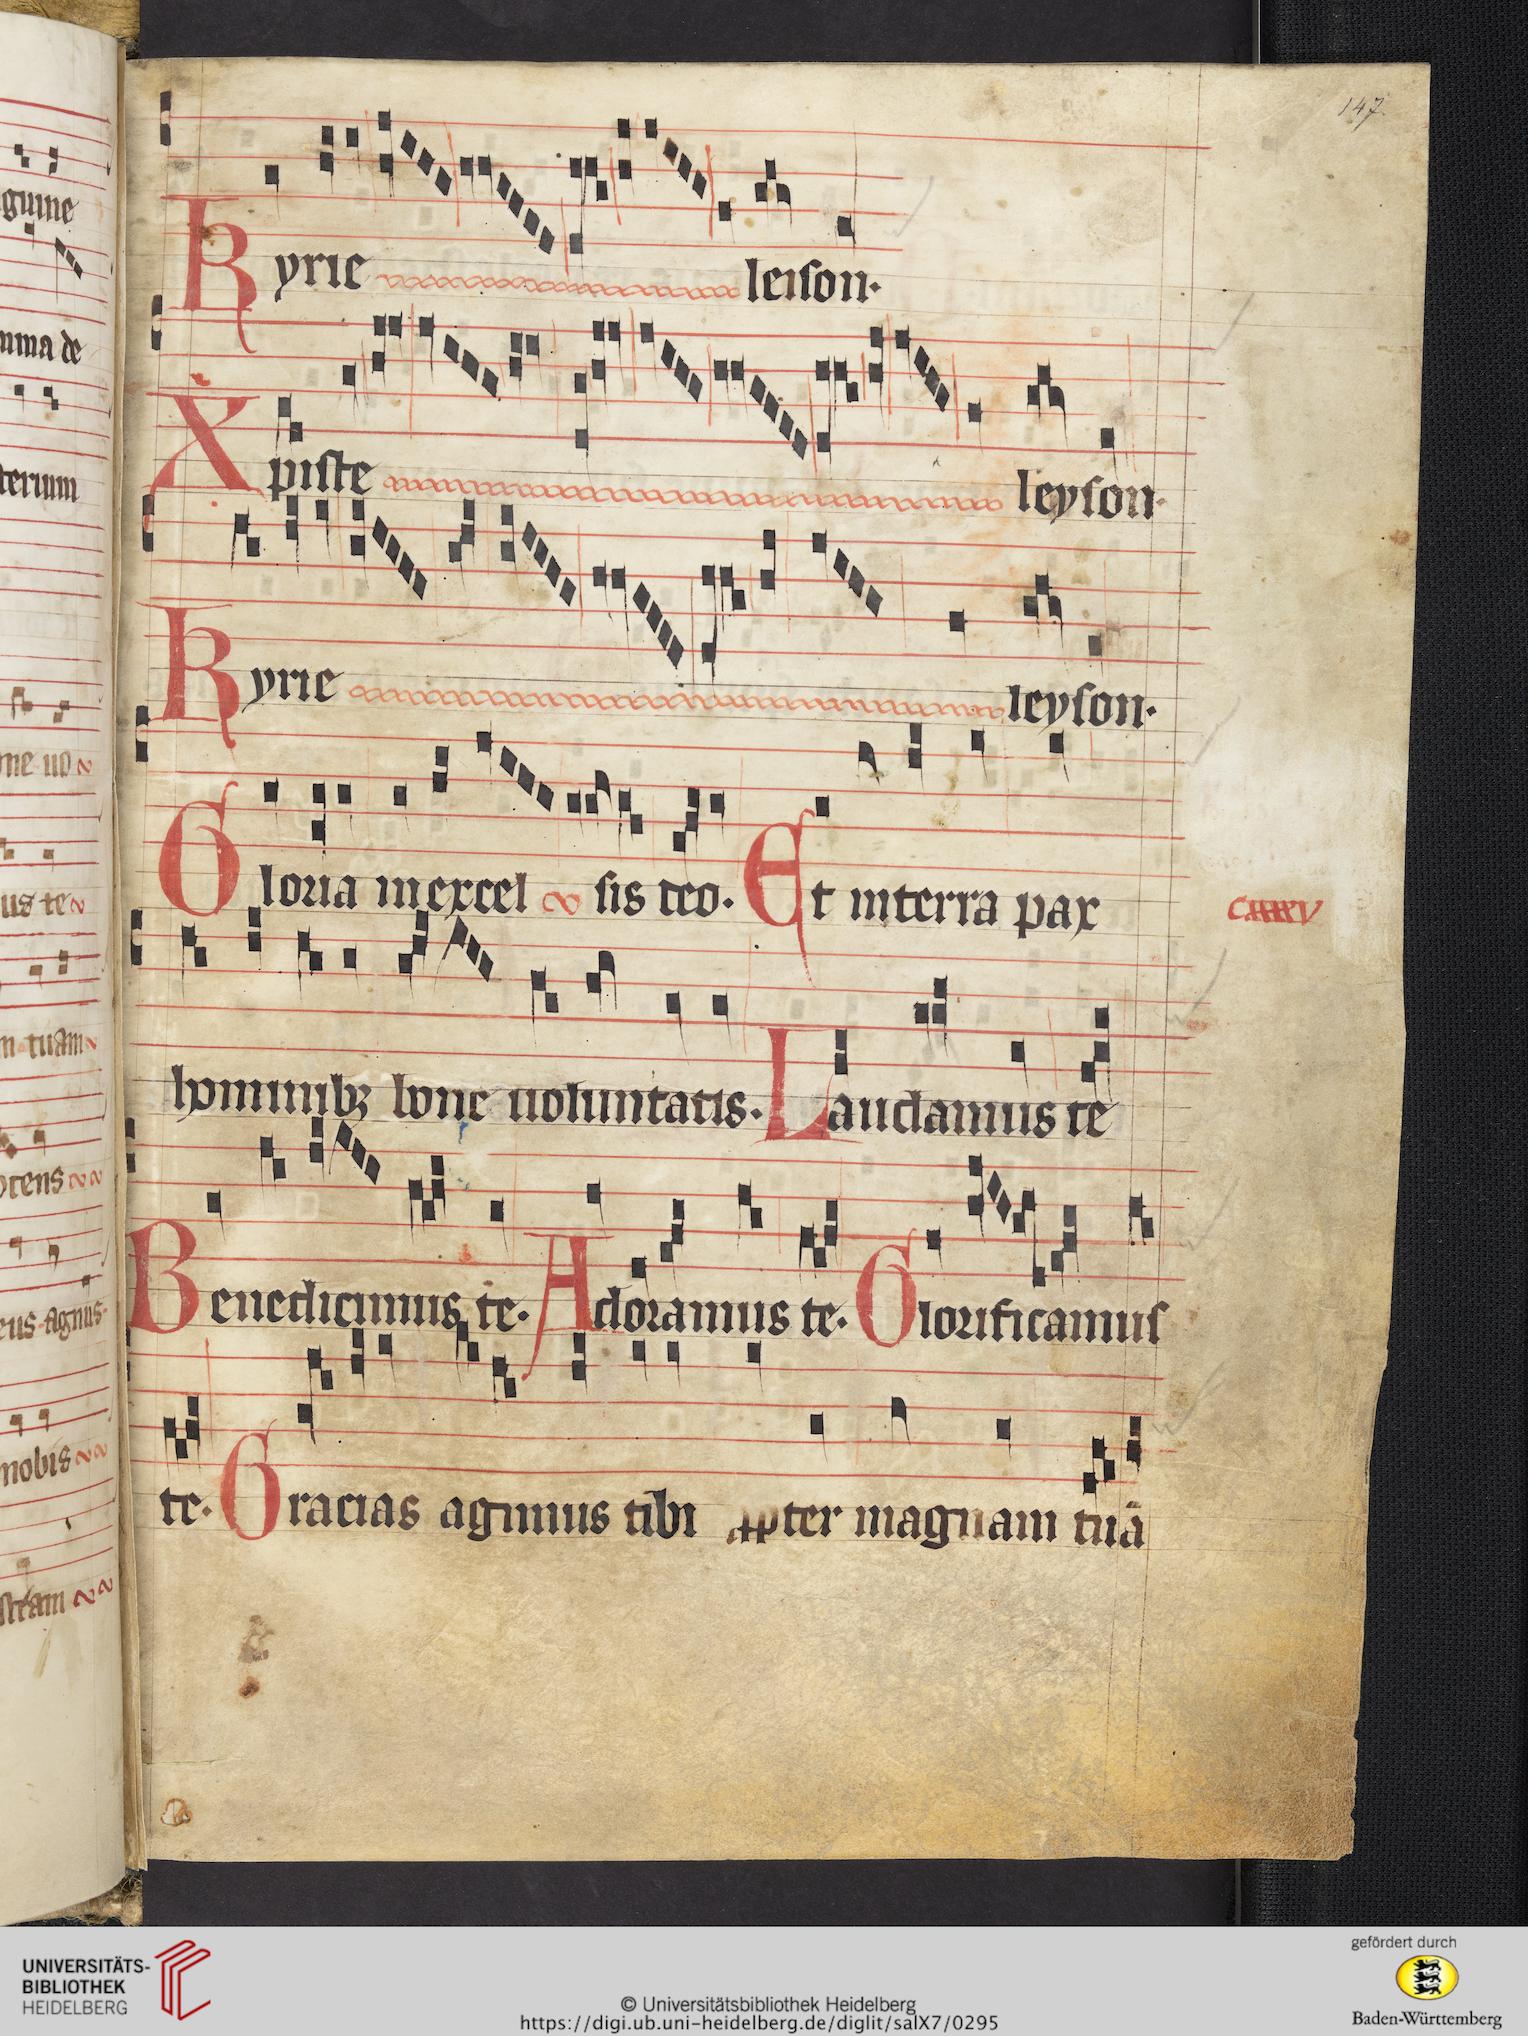 147
guine
mma de
terium
me uo
us te
m tuam
otens
eus agnus
nobis
Kyrie leison.
Xpiste leyson.
Kyrie leyson.
Gloria in excel sis deo. Et in terra pax
hominibꝫ bone uoluntatis. Laudamus te
Benedicimus te. Adoramus te. Glorificamus
te. Gracias agimus tibi ꝓpter magnam tuā
UNIVERSITÄTS-
BIBLIOTHEK
HEIDELBERG
© Universitätsbibliothek Heidelberg
https://digi.ub.uni-heidelberg.de/diglit/salX7/0295
gefördert durch
Baden-Württemberg